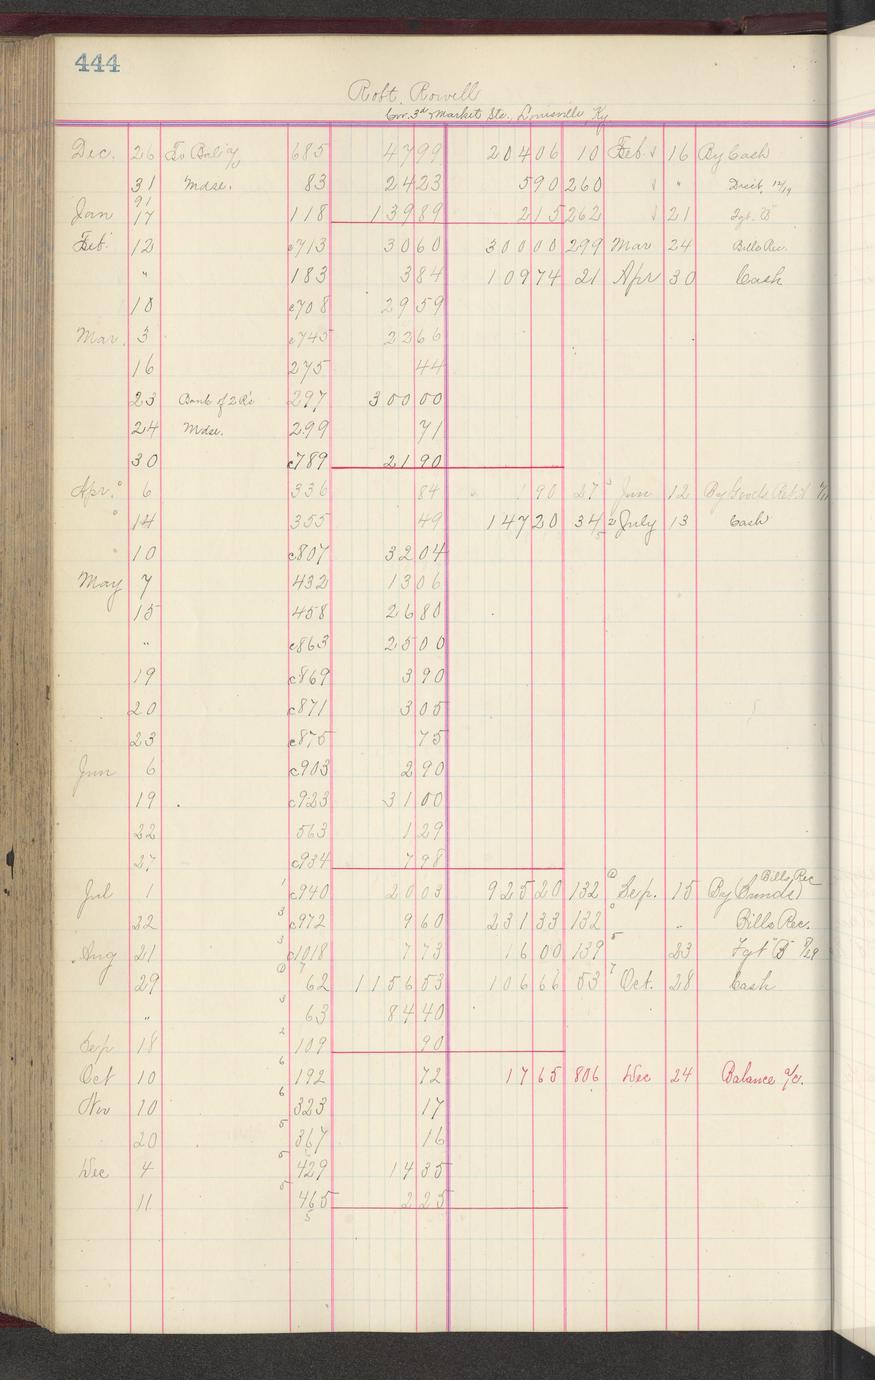 444
Robt. Rowell
Cor. 3d & Market Sts., Louisville, Ky
Dec. 26 To Bal a/c 685 47 99 204 06 10 Feb 16 By Cash
31 Mdse. 83 24 23 5 90 260 " Disct. 12/19
91
Jan 17 118 139 89 2 15 262 21 Fgt. B
Feb. 12 c713 30 60 300 00 299 Mar 24 Bills Rec.
" 183 3 84 109 74 21 Apr 30 Cash
18 c708 29 59
Mar. 3 c745 22 66
16 275 44
23 297 300 00
24 Mdse. 299 71
30 c789 21 90
Apr. 6 336 84 1 90 27 3 Jun 12 By Goods Ret'd
14 355 49 147 20 34 2 July 13 Cash
5
10 c807 32 04
May 7 432 13 06
15 458 26 80
" c863 25 00
19 c869 3 90
20 c871 3 05
23 c875 75
Jun 6 c903 2 90
19 c923 31 00
22 563 1 29
27 c934 7 98
Bills Rec
Jul 1 1 c940 20 03 925 20 132 Sep. 15 By
22 3 c972 9 60 231 33 132 " Bills Rec.
Aug 21 3 c1018 7 73 16 00 139 5 23 Fgt "B" 8/29
29 7 62 1156 53 106 66 53 7 Oct. 28 Cash
" 3 63 84 40
Sep 18 2 109 90
Oct 10 6 192 72 17 65 806 Dec 24 Balance a/c.
Nov 10 6 323 17
20 5 367 16
Dec 4 5 429 14 35
11 5 465 2 25
5